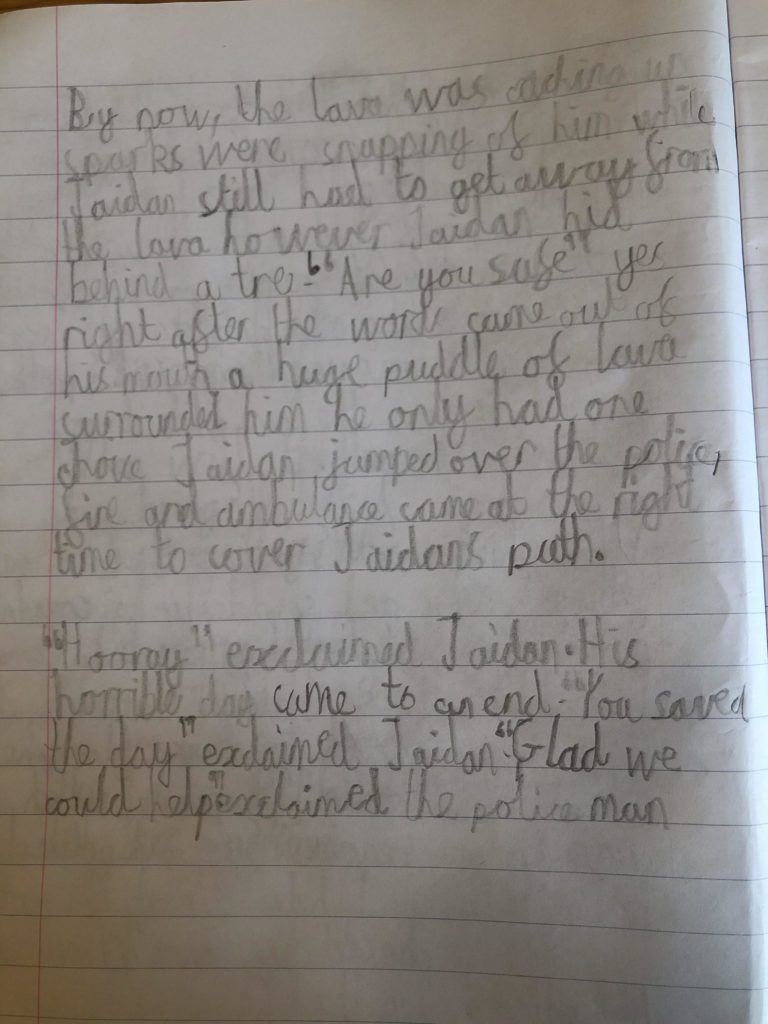 By now, the lava was caching up
sparks were snapping of him while
Jaidan still had to get away from
the lava however Jaidan hid
behind a tre. "Are you safe" yes
right after the words came out of
his mouth a huge puddle of lava
surrounded him he only had one
Jaidan jumped over the police,
fire and ambulance came at the right
time to cover Jaidans path.

"Hooray" exclaimed Jaidan. His
horrible day came to an end. "You saved
the day" exclaimed Jaidan. "Glad we
could help" exclaimed the police man